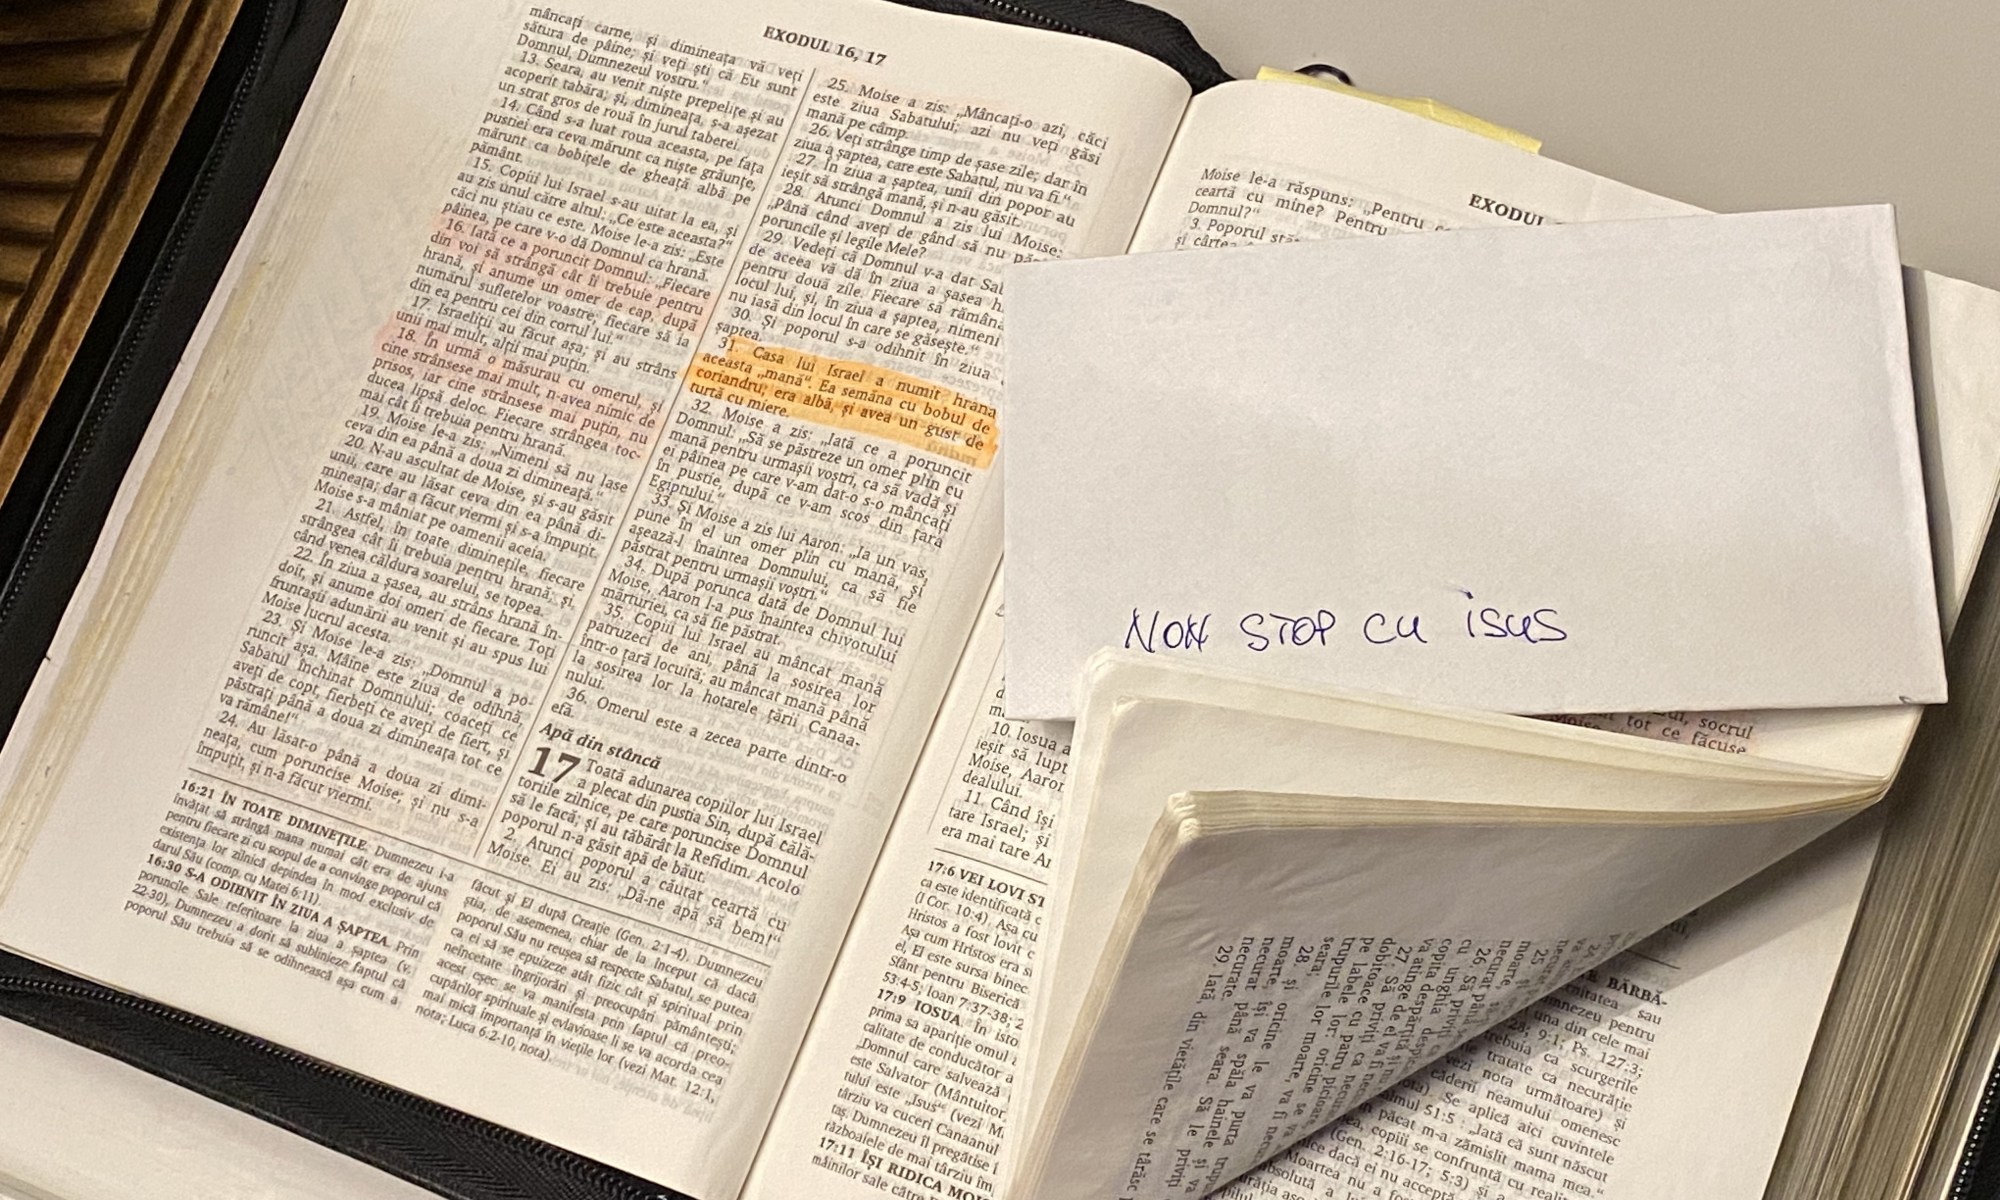 EXODUL 16, 17
mâncați carne, și dimineața vă veți
sătura de pâine; și veți ști că Eu sunt
Domnul, Dumnezeul vostru.”
13. Seara, au venit niște prepelițe și au
acoperit tabăra; și, dimineața, s-a așezat
un strat gros de rouă în jurul taberei.
14. Când s-a luat roua aceasta, pe fața
pustiei era ceva mărunt ca niște grăunțe,
mărunt ca bobițele de gheață albă pe
pământ.
15. Copiii lui Israel s-au uitat la ea, și
au zis unul către altul: „Ce este aceasta?”
căci nu știau ce este. Moise le-a zis: „Este
pâinea, pe care v-o dă Domnul ca hrană.
16. Iată ce a poruncit Domnul: „Fiecare
din voi să strângă cât îi trebuie pentru
hrană, și anume un omer de cap, după
numărul sufletelor voastre; fiecare să ia
din ea pentru cei din cortul lui.”
17. Israeliții au făcut așa; și au strâns
unii mai mult, alții mai puțin.
18. În urmă o măsurau cu omerul, și
cine strânsese mai mult, n-avea nimic de
prisos, iar cine strânsese mai puțin, nu
ducea lipsă deloc. Fiecare strângea toc-
mai cât îi trebuia pentru hrană.
19. Moise le-a zis: „Nimeni să nu lase
ceva din ea până a doua zi dimineață.”
20. N-au ascultat de Moise, și s-au găsit
unii, care au lăsat ceva din ea până di-
mineața; dar a făcut viermi și s-a împuțit.
Moise s-a mâniat pe oamenii aceia.
21. Astfel, în toate diminețile, fiecare
strângea cât îi trebuia pentru hrană; și,
când venea căldura soarelui, se topea.
22. În ziua a șasea, au strâns hrană în-
doit, și anume doi omeri de fiecare. Toți
fruntașii adunării au venit și au spus lui
Moise lucrul acesta.
23. Și Moise le-a zis: „Domnul a po-
runcit așa. Mâine este ziua de odihnă,
Sabatul închinat Domnului; coaceți ce
aveți de copt, fierbeți ce aveți de fiert, și
păstrați până a doua zi dimineața tot ce
va rămâne!”
24. Au lăsat-o până a doua zi dimi-
neața, cum poruncise Moise; și nu s-a
împuțit, și n-a făcut viermi.
25. Moise a zis: „Mâncați-o azi, căci
este ziua Sabatului; azi nu veți găsi
mană pe câmp.
26. Veți strânge timp de șase zile; dar în
ziua a șaptea, care este Sabatul, nu va fi.”
27. În ziua a șaptea, unii din popor au
ieșit să strângă mană, și n-au găsit.
28. Atunci Domnul a zis lui Moise:
„Până când aveți de gând să nu
poruncile și legile Mele?
29. Vedeți că Domnul v-a dat
de aceea vă dă în ziua a șasea
pentru două zile. Fiecare să
locul lui, și, în ziua a șaptea, nimeni
nu iasă din locul în care se găsește.”
30. Și poporul s-a odihnit în ziua
șaptea.
31. Casa lui Israel a numit hrana
aceasta „mană”. Ea semăna cu bobul de
coriandru; era albă, și avea un gust de
turtă cu miere.
32. Moise a zis: „Iată ce a poruncit
Domnul: „Să se păstreze un omer plin cu
mană pentru urmașii voștri, ca să vadă și
ei pâinea pe care v-am dat-o s-o mâncați
în pustie, după ce v-am scos din țara
Egiptului.”
33. Și Moise a zis lui Aaron: „Ia un vas,
pune în el un omer plin cu mană, și
așează-l înaintea Domnului, ca să fie
păstrat pentru urmașii voștri.”
34. După porunca dată de Domnul lui
Moise, Aaron l-a pus înaintea chivotului
mărturiei, ca să fie păstrat.
35. Copiii lui Israel au mâncat mană
patruzeci de ani, până la sosirea lor
într-o țară locuită; au mâncat mană până
la sosirea lor la hotarele țării Canaa-
nului.
36. Omerul este a zecea parte dintr-o
efă.
Apă din stâncă
17 Toată adunarea copiilor lui Israel
a plecat din pustia Sin, după călă-
toriile zilnice, pe care poruncise Domnul
să le facă; și au tăbărât la Refidim. Acolo
poporul n-a găsit apă de băut.
2. Atunci poporul a căutat ceartă cu
Moise. Ei au zis: „Dă-ne apă să bem!”
16:21 ÎN TOATE DIMINEȚILE. Dumnezeu i-a
învățat să strângă mana numai cât era de ajuns
pentru fiecare zi cu scopul de a convinge poporul că
existența lor zilnică depindea în mod exclusiv de
darul Său (comp. cu Matei 6:11).
16:30 S-A ODIHNIT ÎN ZIUA A ȘAPTEA. Prin
poruncile Sale referitoare la ziua a șaptea (v.
22-30), Dumnezeu a dorit să sublinieze faptul că
poporul Său trebuia să se odihnească așa cum a
făcut și El după Creație (Gen. 2:1-4). Dumnezeu
știa, de asemenea, chiar de la început că dacă
poporul Său nu reușea să respecte Sabatul, se putea
ca ei să se epuizeze atât fizic cât și spiritual prin
neîncetate îngrijorări și preocupări pământești;
acest eșec se va manifesta prin faptul că preo-
cupărilor spirituale și evlavioase li se va acorda cea
mai mică importanță în viețile lor (vezi Mat. 12:1,
nota; Luca 6:2-10, nota).
EXODUL
Moise le-a răspuns: „Pentru
ceartă cu mine? Pentru
Domnul?”
3. Poporul
și
NON STOP CU ISUS
socrul
tot ce făcuse
10. Iosua a
ieșit să
Moise, Aaron
dealului.
11. Când își
tare Israel; și
era mai tare
17:6 VEI LOVI
ca este identificată
(I Cor. 10:4). Așa cu
Hristos a fost lovit
Așa cum Hristos era
el, El este sursa
Sfânt pentru Biserică
53:4-5; Ioan 7:37-38;
17:9 IOSUA. În
prima sa apariție omul
calitate de conducător a
„Domnul care salvează
este Salvator
tului este „Isus” (vezi
târziu va cuceri Canaanul
Dumnezeu îl pregătise
războaiele de mai târziu
17:11 ÎȘI RIDICA
mâinilor sale către
29. Iată, din vietățile care se